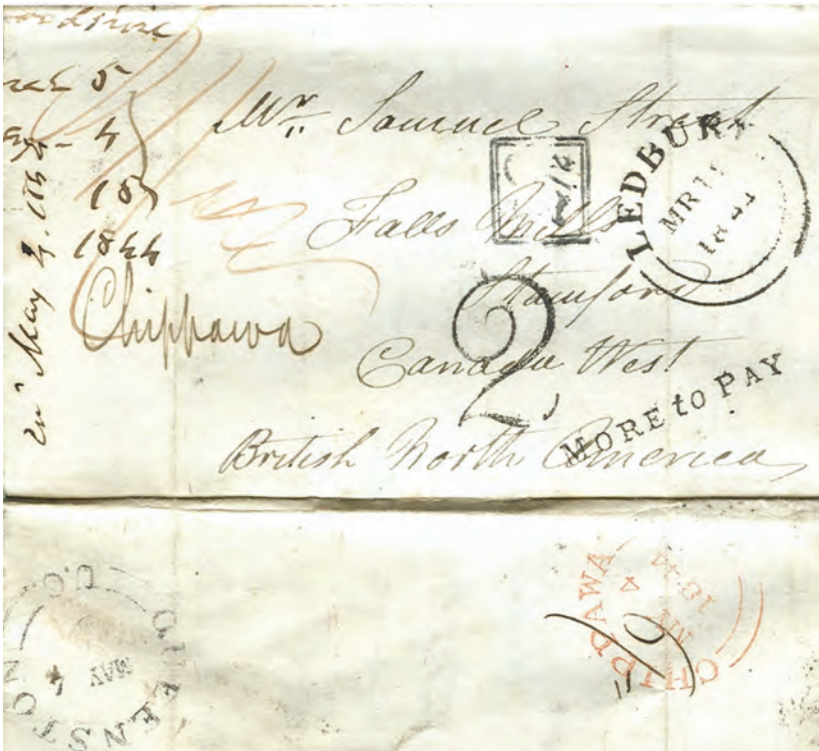 5
4
18
1844
May 4. 1844
Mr. Samuel Street
Falls Mills
Stamford
Canada West
British North America
Chippawa
LEDBURY
MR
2
MORE to PAY
QUEENSTON U.C.
MAY 4
CHIPPAWA
MY 4
1844